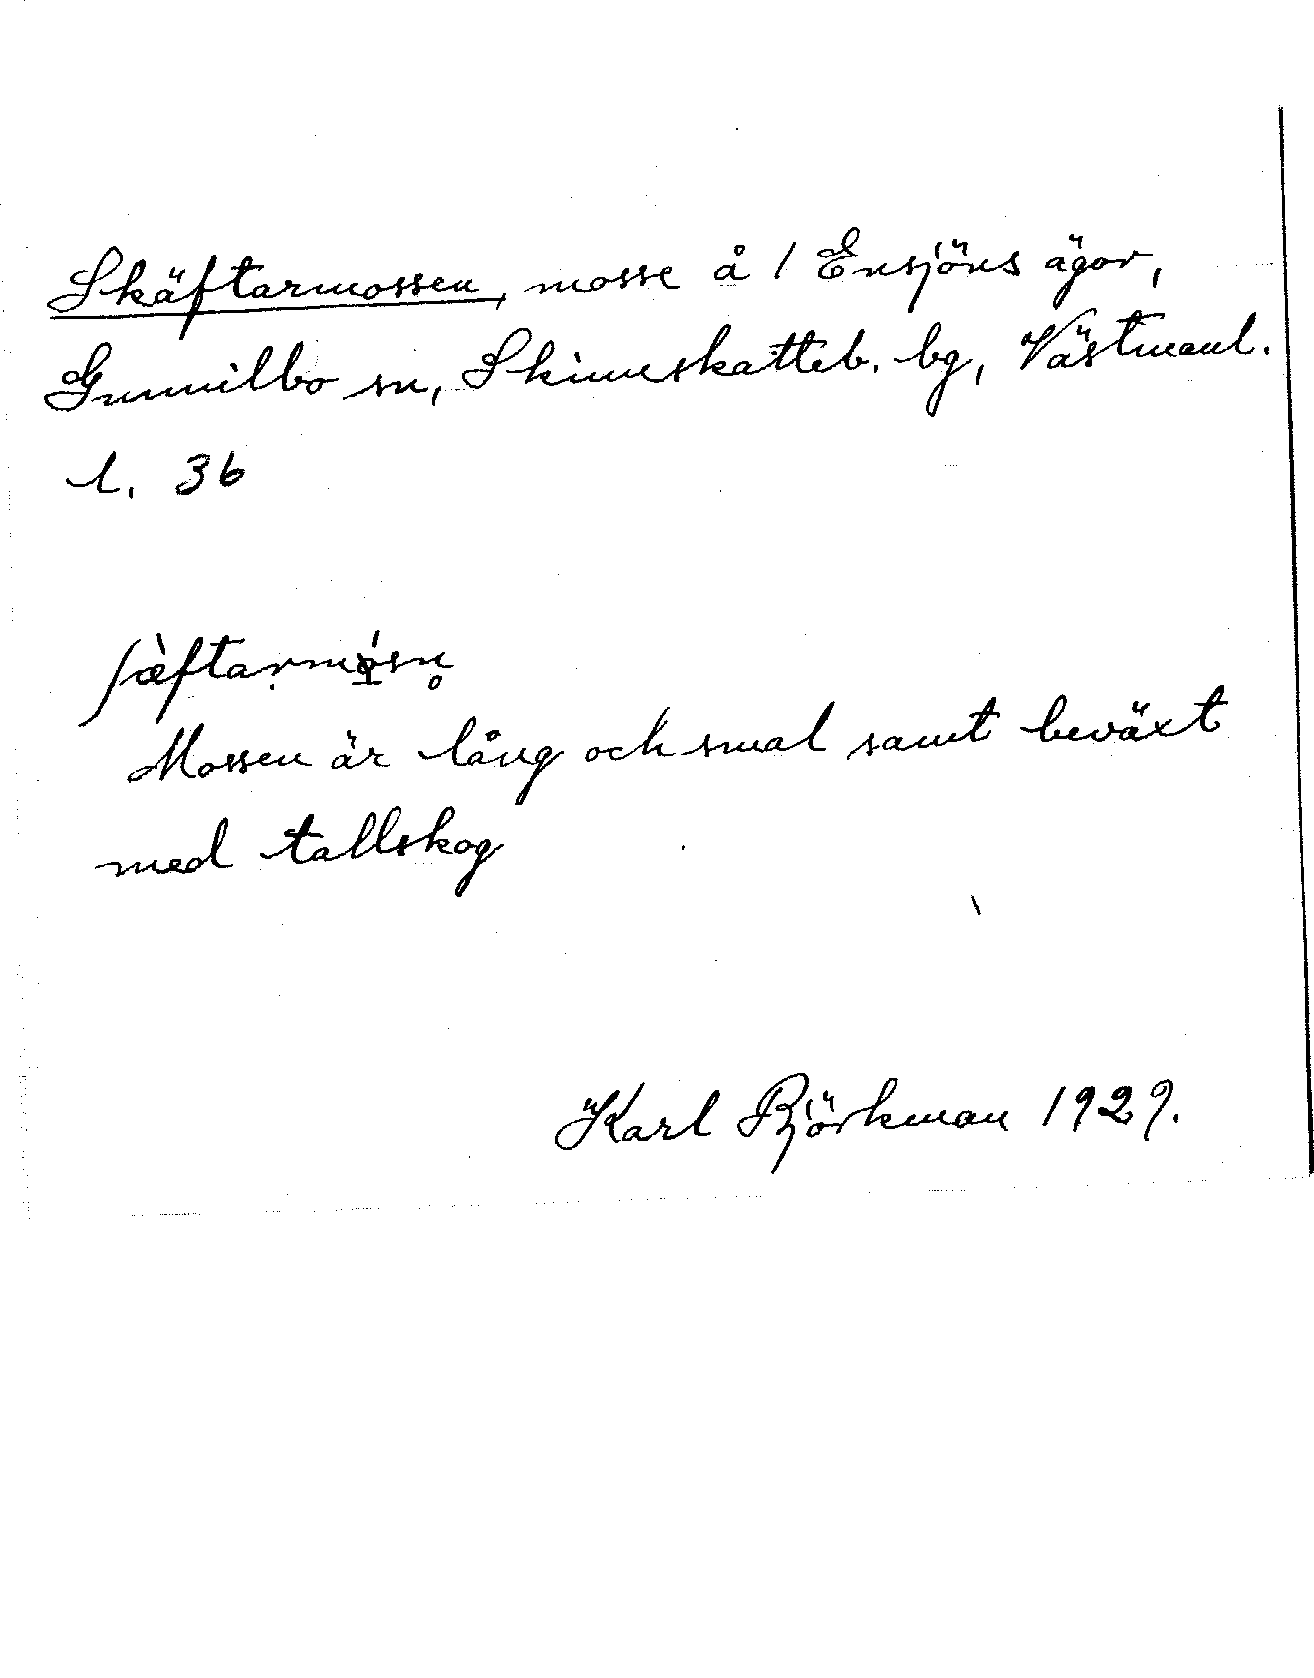 Skäftarmossen, mosse å 1 Ensjöns ägor,
Gunnilbo sn, Skinnskatteb. bg, Västmanl.
l. 36
ʃæ̀ftaṛmósn̥
Mossen är lång och smal samt beväxt
med tallskog
Karl Björkman 1929.